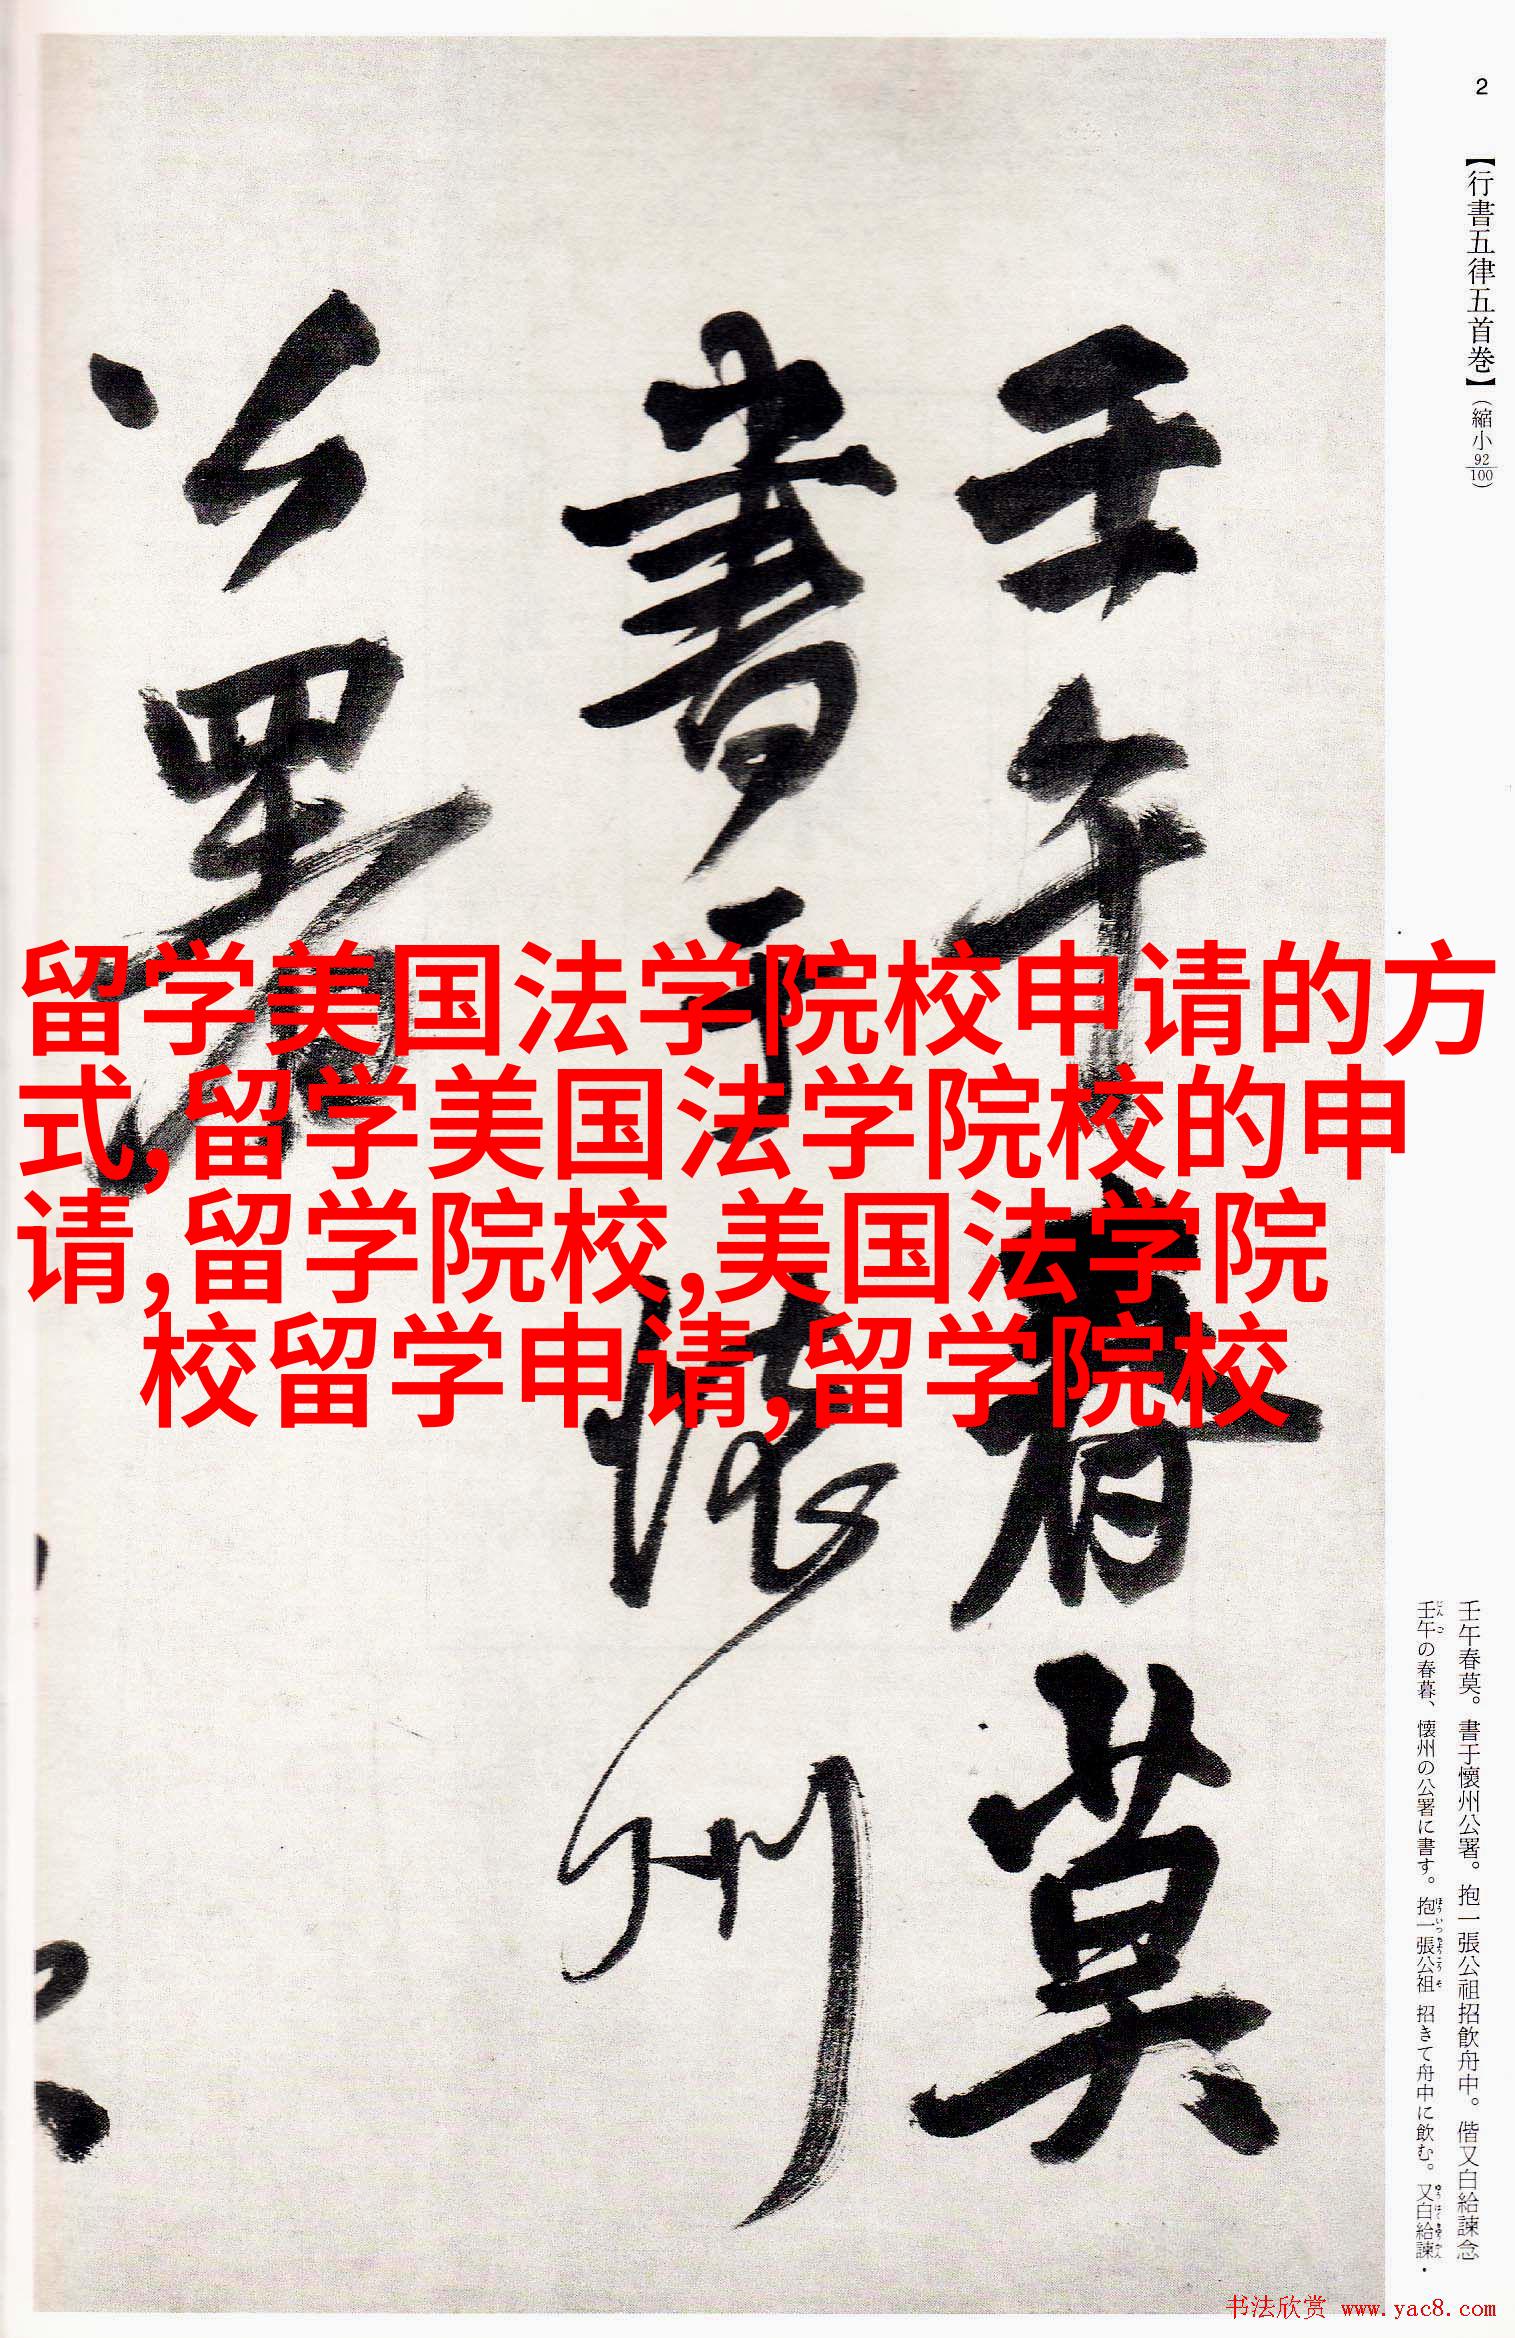 2
【行書五律五首巻】（縮小92/100）
壬午春莫
書于懐州
公署
留学美国法学院校申请的方
式,留学美国法学院校的申
请,留学院校,美国法学院
校留学申请,留学院校
壬午春莫。書于懷州公署。抱一張公祖招飲舟中。偕又白給諫念
壬午の春暮、懐州の公署に書す。抱一張公祖 招きて舟中に飲む。又白給諫・
书法欣赏 www.yac8.com